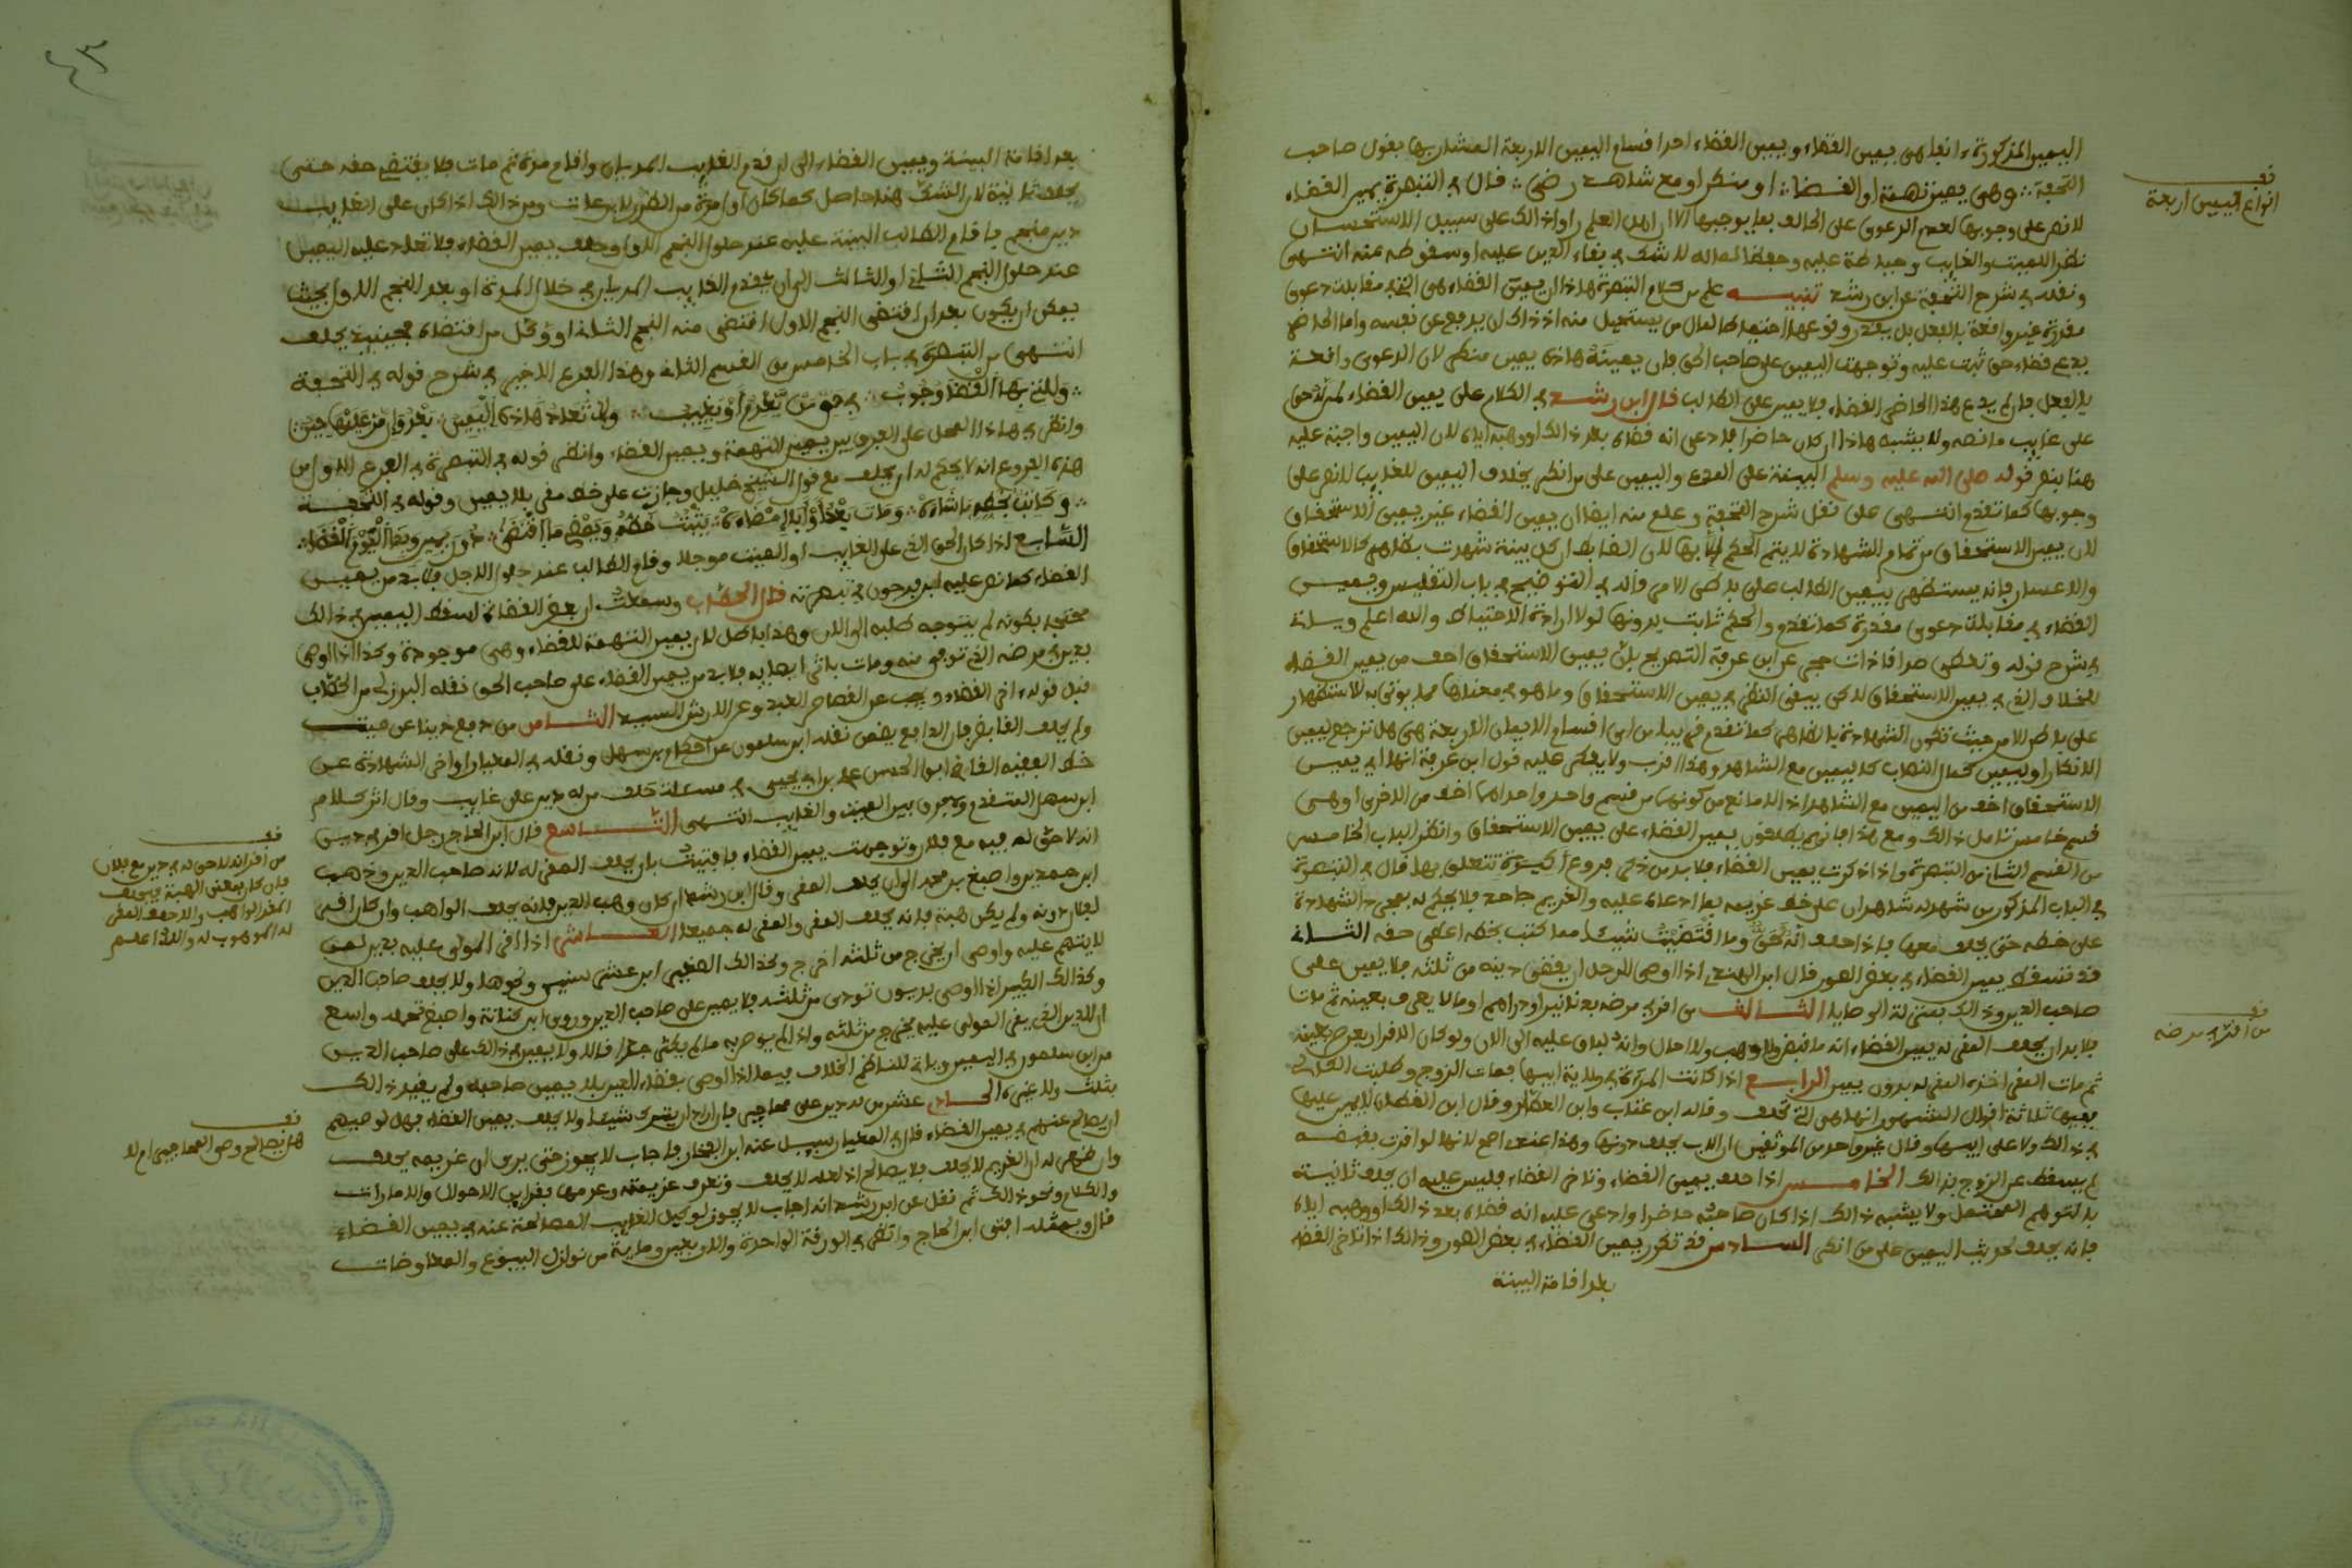 اليمين المذكورة انما هي يمين القضاء ويمين القضاء احد اقسام اليمين الاربعة المشار بها بقول صاحب
التحفة وهي يمين تهمة او القضا او منكر او مع شاهد رضى قال في التبصرة يمين القضاء
لا نص على وجوبها لعدم الدعوى على الحالف بما يوجبها الا ان اهل العلم راوا ذالك على سبيل الاستحسان
نظرا للميت والغايب وحياطة عليه وحفظا لماله للشك في بقاء الدين عليه او سقوطه عنه انتهى
ونقله في شرح التحفة عن ابن رشد تنبيه علم من كلام التبصرة هاذا ان يمين القضاء هي التي في مقابلة دعوى
مقدرة غير واقعة بالفعل بل يقدر وقوعها احتياطا لمال من يستحيل منه اذ ذاك ان يدفع عن نفسه واما الحاضر
يدعي قضاء حق ثبت عليه وتوجهت اليمين على صاحب الحق فان يمينه هاذه يمين منكر لان الدعوى واقعة
بالفعل فان لم يدع هذا الحاضر القضاء فلا يمين على الطالب قال ابن رشد في الكلام على يمين القضاء لمن له حق
على غايب ما نصه ولا يشبه هاذا ان كان حاضرا فادعى انه قضاه بعد ذالك او وهبه اياه لان اليمين واجبة عليه
هنا بنص قوله صلى الله عليه وسلم البينة على المدعي واليمين على من انكر بخلاف اليمين للغايب لا نص على
وجوبها كما تقدم انتهى على نقل شرح التحفة وعلم منه ايضا ان يمين القضاء غير يمين الاستحقاق
لان يمين الاستحقاق من تمام الشهادة لا يتم الحكم الا بها لان الضابط ان كل بينة شهدت بظاهر كالاستحقاق
والاعسار فانه يستظهر بيمين الطالب على باطن الامر قاله في التوضيح في باب التفليس ويمين
القضاء في مقابلة دعوى مقدرة كما تقدم والحكم ثابت بدونها لولا ارادة الاحتياط والله اعلم وسياتي
في شرح قوله عن ابن عرفة التصريح بان يمين الاستحقاق اخف من يمين القضاء
للخلاف الذي في يمين الاستحقاق لاكن يبقى النظر في يمين الاستحقاق وما هو في معناها مما يوتى به للاستظهار
على باطن الامر حيث تكون الشهادة بالظاهر كما تقدم من اي اقسام الايمان الاربعة هي هل ترجع ليمين
الانكار او ليمين كمال النصاب كاليمين مع الشاهد وهذا اقرب ولا يعكر عليه قول ابن عرفة انها اي يمين
الاستحقاق اخف من اليمين مع الشاهد اذ لا مانع من كونهما من قسم واحد واحداهما اخف من الاخرى او هي
قسم خامس تامل ذالك ومع هذا فانهم يطلقون يمين القضاء على يمين الاستحقاق وانظر الباب الخامس
من القسم الثاني من التبصرة واذا ذكرت يمين القضاء فلا بد من ذكر فروع اكيدة تتعلق بها قال في التبصرة
في الباب المذكور من شهد له شاهدان على خط غريمه بما ادعاه عليه والغريم جاحد فلا يحكم له بمجرد الشهادة
على خطه حتى يحلف معها فاذا حلف انه لحق وما اقتضيت شيئا مما كتب بخطه اعطي حقه الثاني
قد تسقط يمين القضاء في بعض الصور قال ابن الهندي اذا اوصى الرجل ان يقضى دينه من ثلثه فلا يمين على
صاحب الدين وذالك بمنزلة الوصايا الثالث من اقر في مرضه بدنانير او دراهم او ما لا يعرف بعينه ثم مات
فلا بد ان يحلف المقر له يمين القضاء انه ما قبض ولا وهب ولا احال وانه لباق عليه الى الان ولو كان الاقرار بعرض بعينه
ثم مات المقر اخذه المقر له بدون يمين الرابع اذا كانت المراة في ولاية ابيها فمات الزوج وطلبت الكالئ
ففيها ثلاثة اقوال المشهور انها هي التي تحلف وقاله ابن عتاب وابن العطار وقال ابن القطان لا يمين عليها
في ذالك ولا على ابيها وقال غير واحد من الموثقين ان الاب يحلف دونها وهذا عندي اصح لانها لو اقرت بقبضه
لم يسقط عن الزوج بذالك الخامس اذا حلف يمين القضاء وتاخر القضاء فليس عليه ان يحلف ثانية
بالتوهم المحتمل ولا يشبه ذالك اذا كان صاحبه حاضرا وادعى عليه انه قضاه بعد ذالك او وهبه اياه
فانه يحلف لحديث اليمين على من انكر السادس قد تكرر يمين القضاء في بعض الصور وذالك اذا تاخر القضاء
بعد اقامة البينة
انواع اليمين اربعة
من اقر في مرضه
بعد اقامة البينة ويمين القضاء الى ان قدم الغايب المديان واقام مدة ثم مات فلا يقتضي حقه حتى
يحلف ثانية لان الشك هنا حاصل كما كان اول مرة ومن ذالك اذا كان على الغايب
دين منجم فاقام الطالب البينة عليه عند حلول النجم الاول وحلف يمين القضاء فلا تعاد عليه اليمين
عند حلول النجم الثاني او الثالث الى ان يقدم الغايب المديان في خلال المدة او بعد النجم الاول بحيث
يمكن ان يكون بعد ان اقتضى النجم الاول اقتضى منه النجم الثاني او وكل من اقتضاه فحينئذ يحلف
انتهى من التبصرة في باب الخامس من القسم الثاني وهذا الفرع الاخير في شرح قوله في التحفة
وللتي بها القضا وجوب في حق من يعدم او يغيب ولا تعاد هاذه اليمين بعد وان مر عليها حين
وانظر في هاذا المحل على الفرق بين يمين التهمة ويمين القضاء وانظر قوله في التبصرة في الفرع الاول من
هذه الفروع انه لا يحكم له ان يحلف مع قول الشيخ خليل وجازت على خط مقر بلا يمين وقوله في التحفة
وكاتب بخطه ما شاءه ومات بعد او ابى امضاءه يثبت خطه ويمضي ما اقتضى دون يمين وبذا اليوم القضا
السابع اذا كان الحق الذي على الغايب او الميت موجلا وقام الطالب عند حلول الاجل فلا بد من يمين
القضاء كما نص عليه ابن فرحون في تبصرته قال الحطاب وسمعت ان بعض القضاة اسقط اليمين في ذالك
محتجا بكونه لم يتوجه طلبه الى الان وهذا باطل لان يمين التهمة للقضاء وهي موجودة وكذا اذا اوصى
بدين في مرضه الذي توفي منه ومات باثر ايصائه فلا بد من يمين القضاء على صاحب الحق نقله البرزلي من الحطاب
قبل قوله في اخر القضاء ويجيب عن القصاص العبد وعن الارش السيد الثامن من دفع دينا عن ميت
ولم يحلف القابض فان الدافع يضمن نقله ابن سلمون عن احكام ابن سهل ونقله في المعيار اواخر الشهادة عن
خط الفقيه القاضي ابي الحسن علي بن ابي يحيى في مسئلة حلف من له دين على غايب وقال اثر كلام
ابن سهل المتقدم ولا فرق بين الميت والغايب انتهى التاسع قال ابن الحاج رجل اقر في دين
انه لا حق له فيه مع فلان وتوجهت يمين القضاء فافتيت بان يحلف المقر له لانه صاحب الدين وذهب
ابن حمدين واصبغ بن محمد الى ان يحلف المقر وقال ابن رشد ان كان وهب الدين فانه يحلف الواهب وان كان اقر
لفلان دونه ولم يكن هبة فانه يحلف المقر والمقر له جميعا العاشر اذا اقر المولى عليه بدين لمن
لا يتهم عليه واوصى ان يخرج من ثلثه اخرج وكذالك الصغير ابن عشر سنين ونحوها ولا يحلف صاحب الدين
وكذالك الكبير اذا اوصى بديون تودى من ثلثه فلا يمين على صاحب الدين وروى ابن كنانة واصبغ
ان الدين الذي يقر المولى عليه يخرج من ثلثه واذا لم يوص به ما لم يكثر جدا قالا ولا يمين في ذالك على صاحب الدين
من ابن سلمون في اليمين وياتي للناظم الخلاف فيما اذا اوصى بقضاء الدين بلا يمين صاحبه ولم يقيد ذالك
بثلث ولا غيره الحادي عشر من له دين على محاجير فاراد ان يترك شيئا ولا يحلف يمين القضاء فهل لوصيهم
ان يصالح عنهم في يمين القضاء قال في المعيار سيل عنه ابن الفخار فاجاب لا يجوز حتى يرى ان غريمه يحلف
وان ظهر له ان الغريم لا يحلف فلا يصالح اذ لعله لا يحلف وتعرف عزيمته وعدمها بقراين الاحوال والامارات
والكلام ونحو ذالك ثم نقل عن ابن رشد انه اجاب لا يجوز لوكيل الغايب المصالحة عنه في يمين القضاء
قال وبمثله افتى ابن الحاج وانظر في الورقة الواحدة والاربعين وماية من نوازل البيوع والمعاوضات
من اقر انه لا حق له في دين مع فلان
فان كان بمعنى الهبة فيحلف
المقر الواهب والا حلف المقر
له الموهوب له والله اعلم
هل يصالح وصي المحاجير ام لا